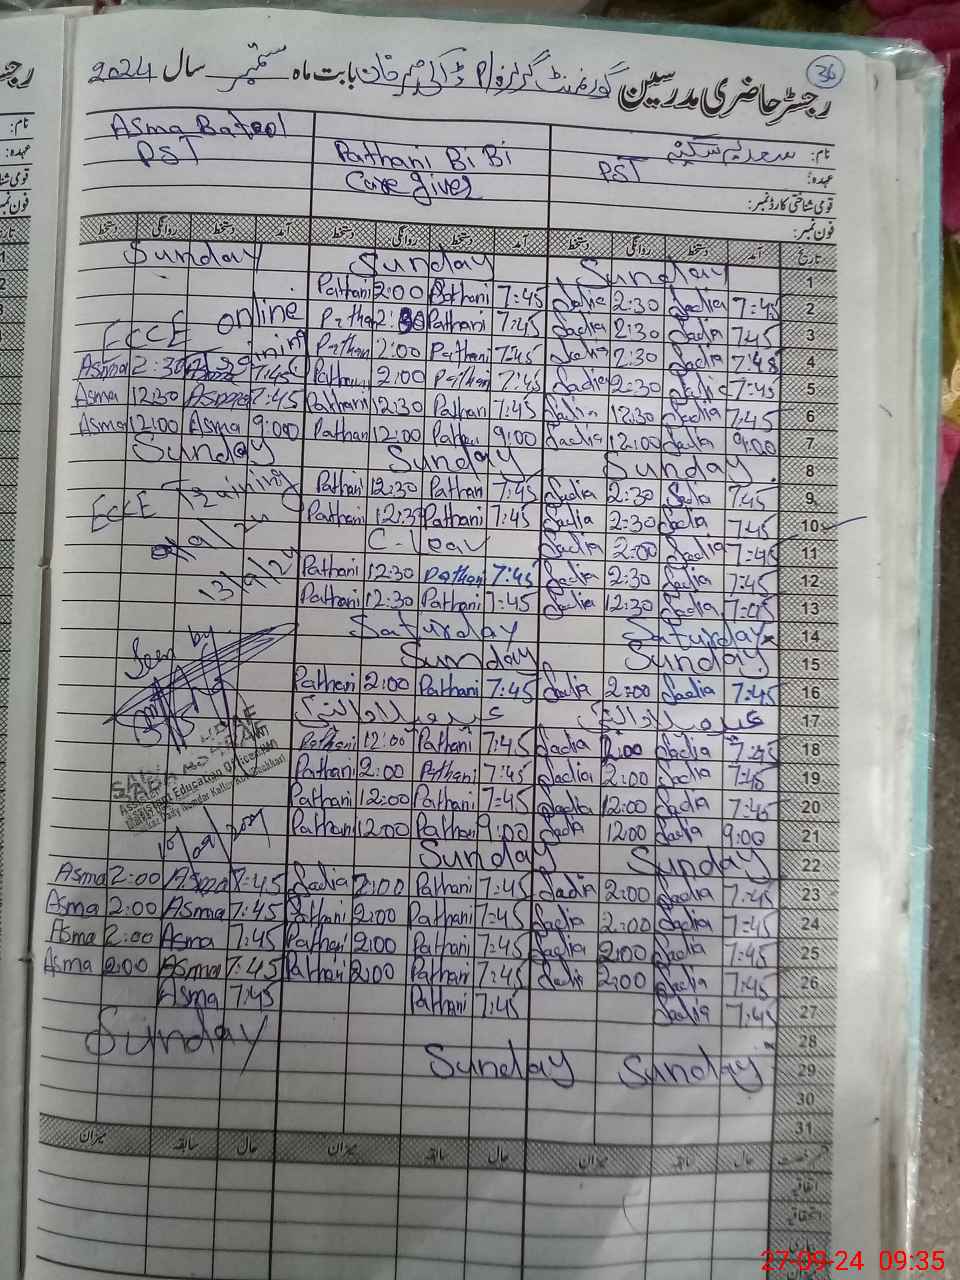 36
رجسٹر حاضری مدرسین گورنمنٹ گرلز بابت ماہ ستمبر سال 2024
نام: سعدیہ سکینہ Pathani BiBi Asma Batool
عہدہ: PST Care giver PST
قومی شناختی کارڈ نمبر:
فون نمبر:
تاریخ آمد دستخط روانگی دستخط آمد دستخط روانگی دستخط آمد دستخط روانگی دستخط
1 Sunday Sunday Sunday
2 7:45 Sadia 2:30 Sadia 7:45 Pathani 2:00 Pathani
3 7:45 Sadia 2:30 Sadia 7:45 Pathani 2:30 Pathani ECCE online
4 7:45 Sadia 2:30 Sadia 7:45 Pathani 2:00 Pathan Training
5 7:45 Sadia 2:30 Sadia 7:45 Pathani 2:00 Pathani 7:45 Asma 2:30 Asma
6 7:45 Sadia 12:30 Sadia 7:45 Pathani 12:30 Pathani 7:45 Asma 12:30 Asma
7 9:00 Sadia 12:00 Sadia 9:00 Pathani 12:00 Pathani 9:00 Asma 12:00 Asma
8 Sunday Sunday Sunday
9 7:45 Sadia 2:30 Sadia 7:45 Pathani 12:30 Pathani
10 7:45 Sadia 2:30 Sadia 7:45 Pathani 12:30 Pathani ECCE Training
11 7:45 Sadia 2:00 Sadia C-Leav
12 7:45 Sadia 2:30 Sadia 7:45 Pathani 12:30 Pathani
13 7:45 Sadia 12:30 Sadia 7:45 Pathani 12:30 Pathani 13/9/24
14 Saturday Saturday
15 Sunday Sunday Seen by
16 7:45 Sadia 2:00 Sadia 7:45 Pathani 2:00 Pathani
17 عید میلاد النبی عید میلاد النبی
18 7:45 Sadia 2:00 Sadia 7:45 Pathani 12:00 Pathani
19 7:45 Sadia 2:00 Sadia 7:45 Pathani 2:00 Pathani
Assistant Education Officer
20 7:45 Sadia 12:00 Sadia 7:45 Pathani 12:00 Pathani
21 9:00 Sadia 12:00 Sadia 9:00 Pathani 12:00 Pathani
22 Sunday Sunday
23 7:45 Sadia 2:00 Sadia 7:45 Pathani 2:00 Sadia 7:45 Asma 2:00 Asma
24 7:45 Sadia 2:00 Sadia 7:45 Pathani 2:00 Pathani 7:45 Asma 2:00 Asma
25 7:45 Sadia 2:00 Sadia 7:45 Pathani 2:00 Pathani 7:45 Asma 2:00 Asma
26 7:45 Sadia 2:00 Sadia 7:45 Pathani 2:00 Pathani 7:45 Asma 2:00 Asma
27 7:45 Sadia 7:45 Pathani 7:45 Asma
28 Sunday
29 Sunday Sunday
30
31
قسم رخصت حال سابقہ میزان حال سابقہ میزان حال سابقہ میزان
اتفاقیہ
استحقاقیہ
27-09-24 09:35